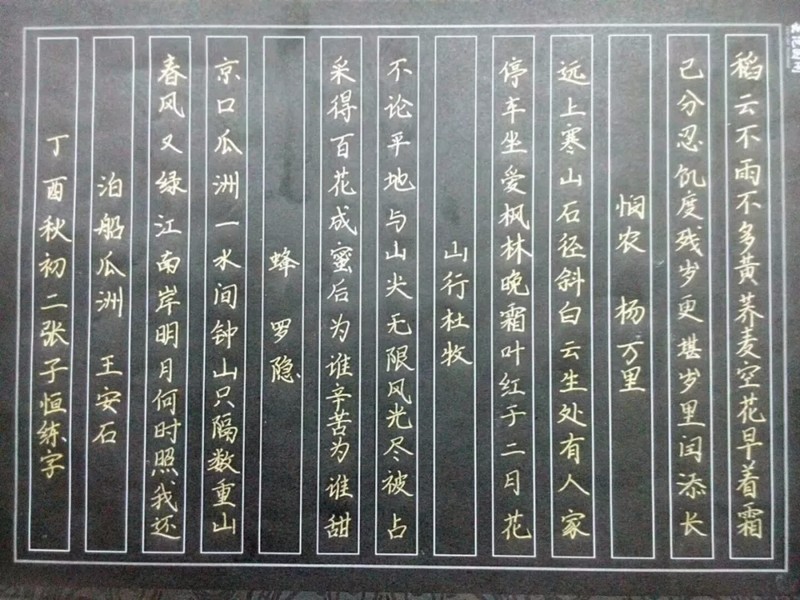 稻云不雨不多黄荞麦空花早着霜
己分忍饥度残岁更堪岁里闰添长
悯农 杨万里
远上寒山石径斜白云生处有人家
停车坐爱枫林晚霜叶红于二月花
山行杜牧
不论平地与山尖无限风光尽被占
采得百花成蜜后为谁辛苦为谁甜
蜂 罗隐
京口瓜洲一水间钟山只隔数重山
春风又绿江南岸明月何时照我还
泊船瓜洲 王安石
丁酉秋初二张子恒练字